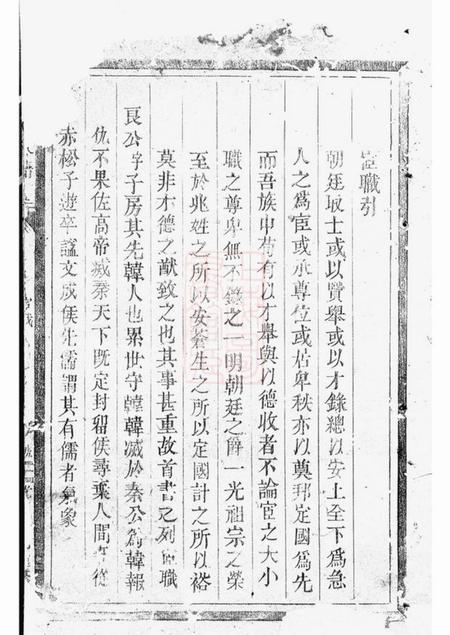 宦職引
朝廷取士或以賢舉或以才錄總以安上全下爲急
人之爲宦或承尊位或居卑秩亦以奠邦定國爲先
而吾族中苟有以才舉與以德收者不論宦之大小
職之尊卑無不錄之一明朝廷之爵一光祖宗之榮
至於兆姓之所以安蒼生之所以定國計之所以裕
莫非大德之猷致之也其事甚重故首書之列宦職
良公字子房其先韓人也累世守韓韓滅於秦公為韓報
仇不果佐高帝滅秦天下既定封留侯尋棄人間事從
赤松子遊卒諡文成侯先儒謂其有儒者氣象